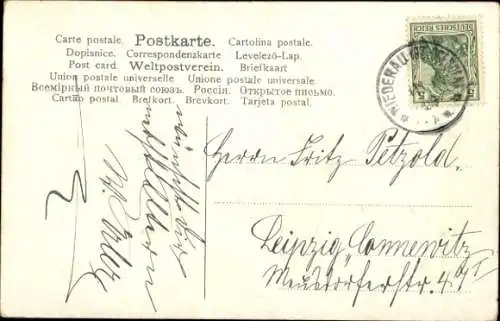 Carte postale. Postkarte. Cartolina postale.
Dopisnice. Correspondenzkarte Levelező-Lap.
Post card. Weltpostverein. Briefkaart
Union postale universelle Unione postale universale.
Всемірный почтовый союзъ. Россія. Открытое письмо.
Cartão postal. Brefkort. Brevkort. Tarjeta postal.
DEUTSCHES REICH
5 5
NIEDERAU
Herrn Fritz Petzold.
Leipzig Connewitz
Meusdorferstr. 49 I
wünscht Dir